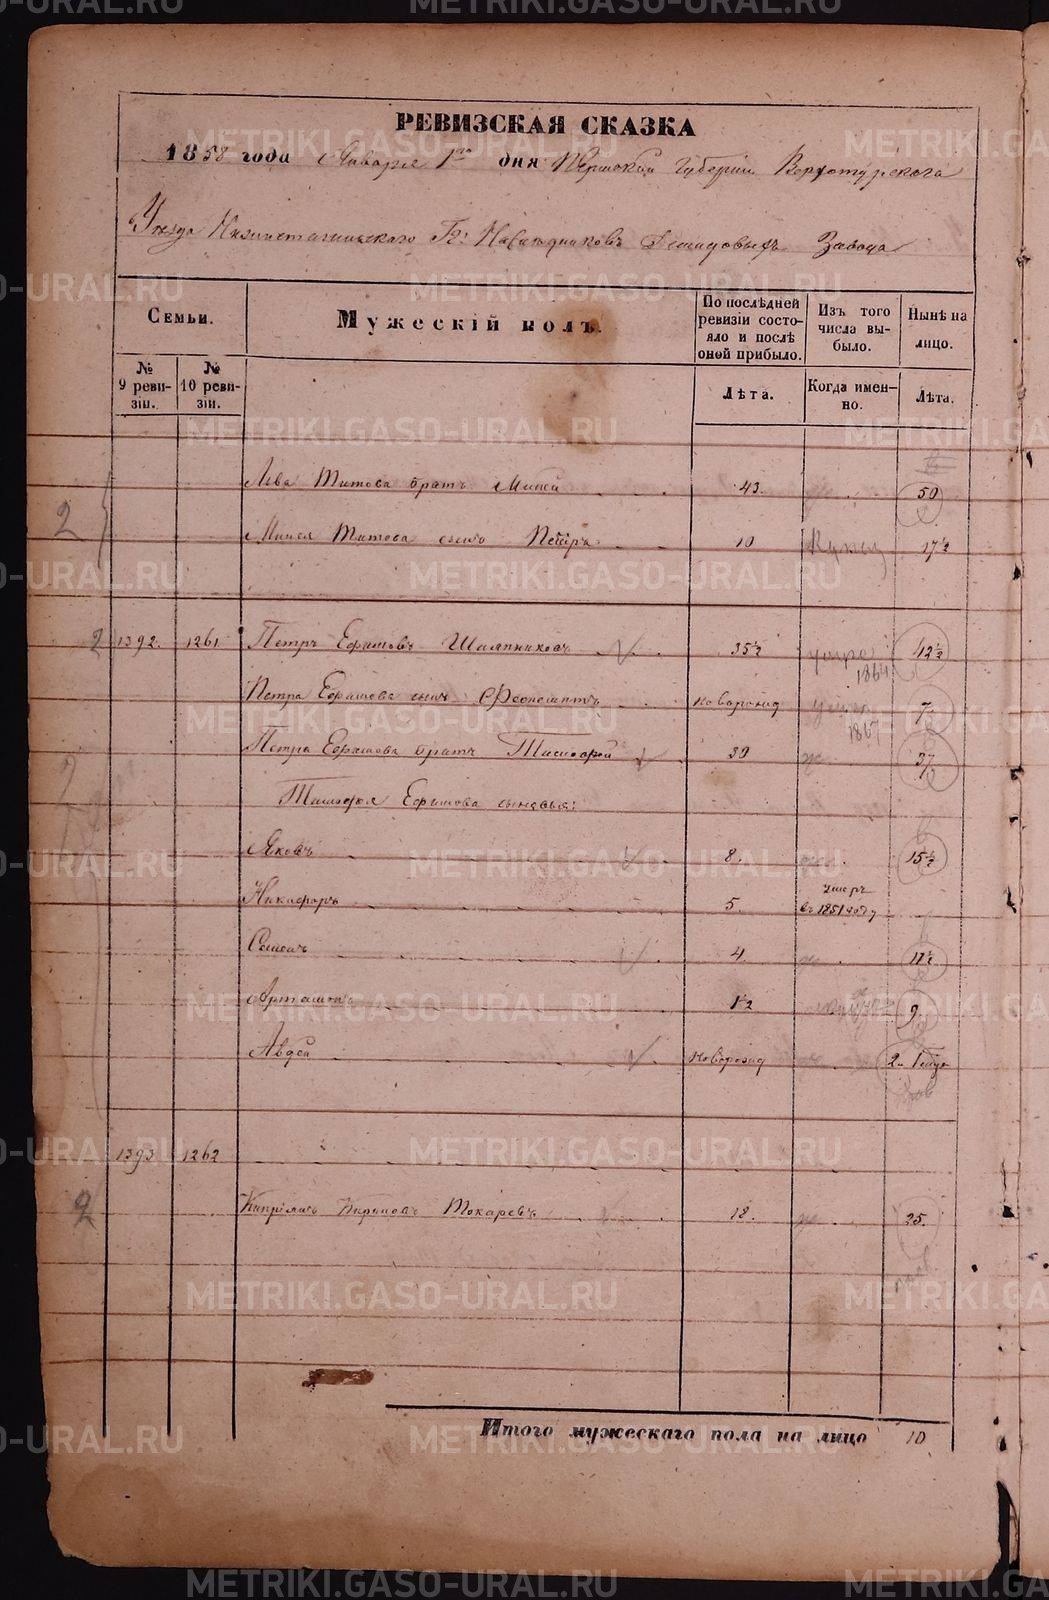 РЕВИЗСКАЯ СКАЗКА
1858 года Января 1го дня Пермской Губернии Верхотурскаго
Уезда Нижнетагильскаго Гг. Наследниковъ Демидовыхъ Завода
Семьи.
Мужескій полъ.
По послѣдней ревизіи состояло и послѣ оной прибыло.
Изъ того числа выбыло.
Нынѣ на лицо.
№ 9 ревизіи.
№ 10 ревизіи.
Лѣта.
Когда именно.
Лѣта.
Льва Титова братъ Миней 43. 50
2
Минея Титова сынъ Петръ 10 17½
2 1392. 1261 Петръ Ефимовъ Шляпниковъ 35½ умре 1864 42½
Петра Ефимова сынъ Феопемптъ новорожд 1867 7.
Петра Ефимова братъ Тимофей 30 37
Тимофея Ефимова сыновья:
Яковъ 8. 15½
Никифоръ 5. умеръ въ 1851 году
Семенъ 4. 11½
Артамонъ 1½ 9.
Авдей новорожд 2
1393 1262
2 Кипріянъ Токаревъ 18. 25.
Итого мужескаго пола на лицо 10
METRIKI.GASO-URAL.RU